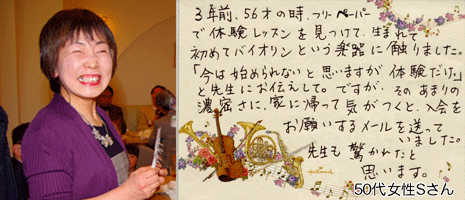 3年前、56才の時、フリーペーパー
で体験レッスンを見つけて、生まれて
初めてバイオリンという楽器に触りました。
「今は始められないと思いますが体験だけ」
と先生にお伝えして。ですが、そのあまりの
濃密さに、家に帰って気がつくと、入会を
お願いするメールを送って
いました。
先生も驚かれたと
思います。
Hallmark
50代女性Sさん